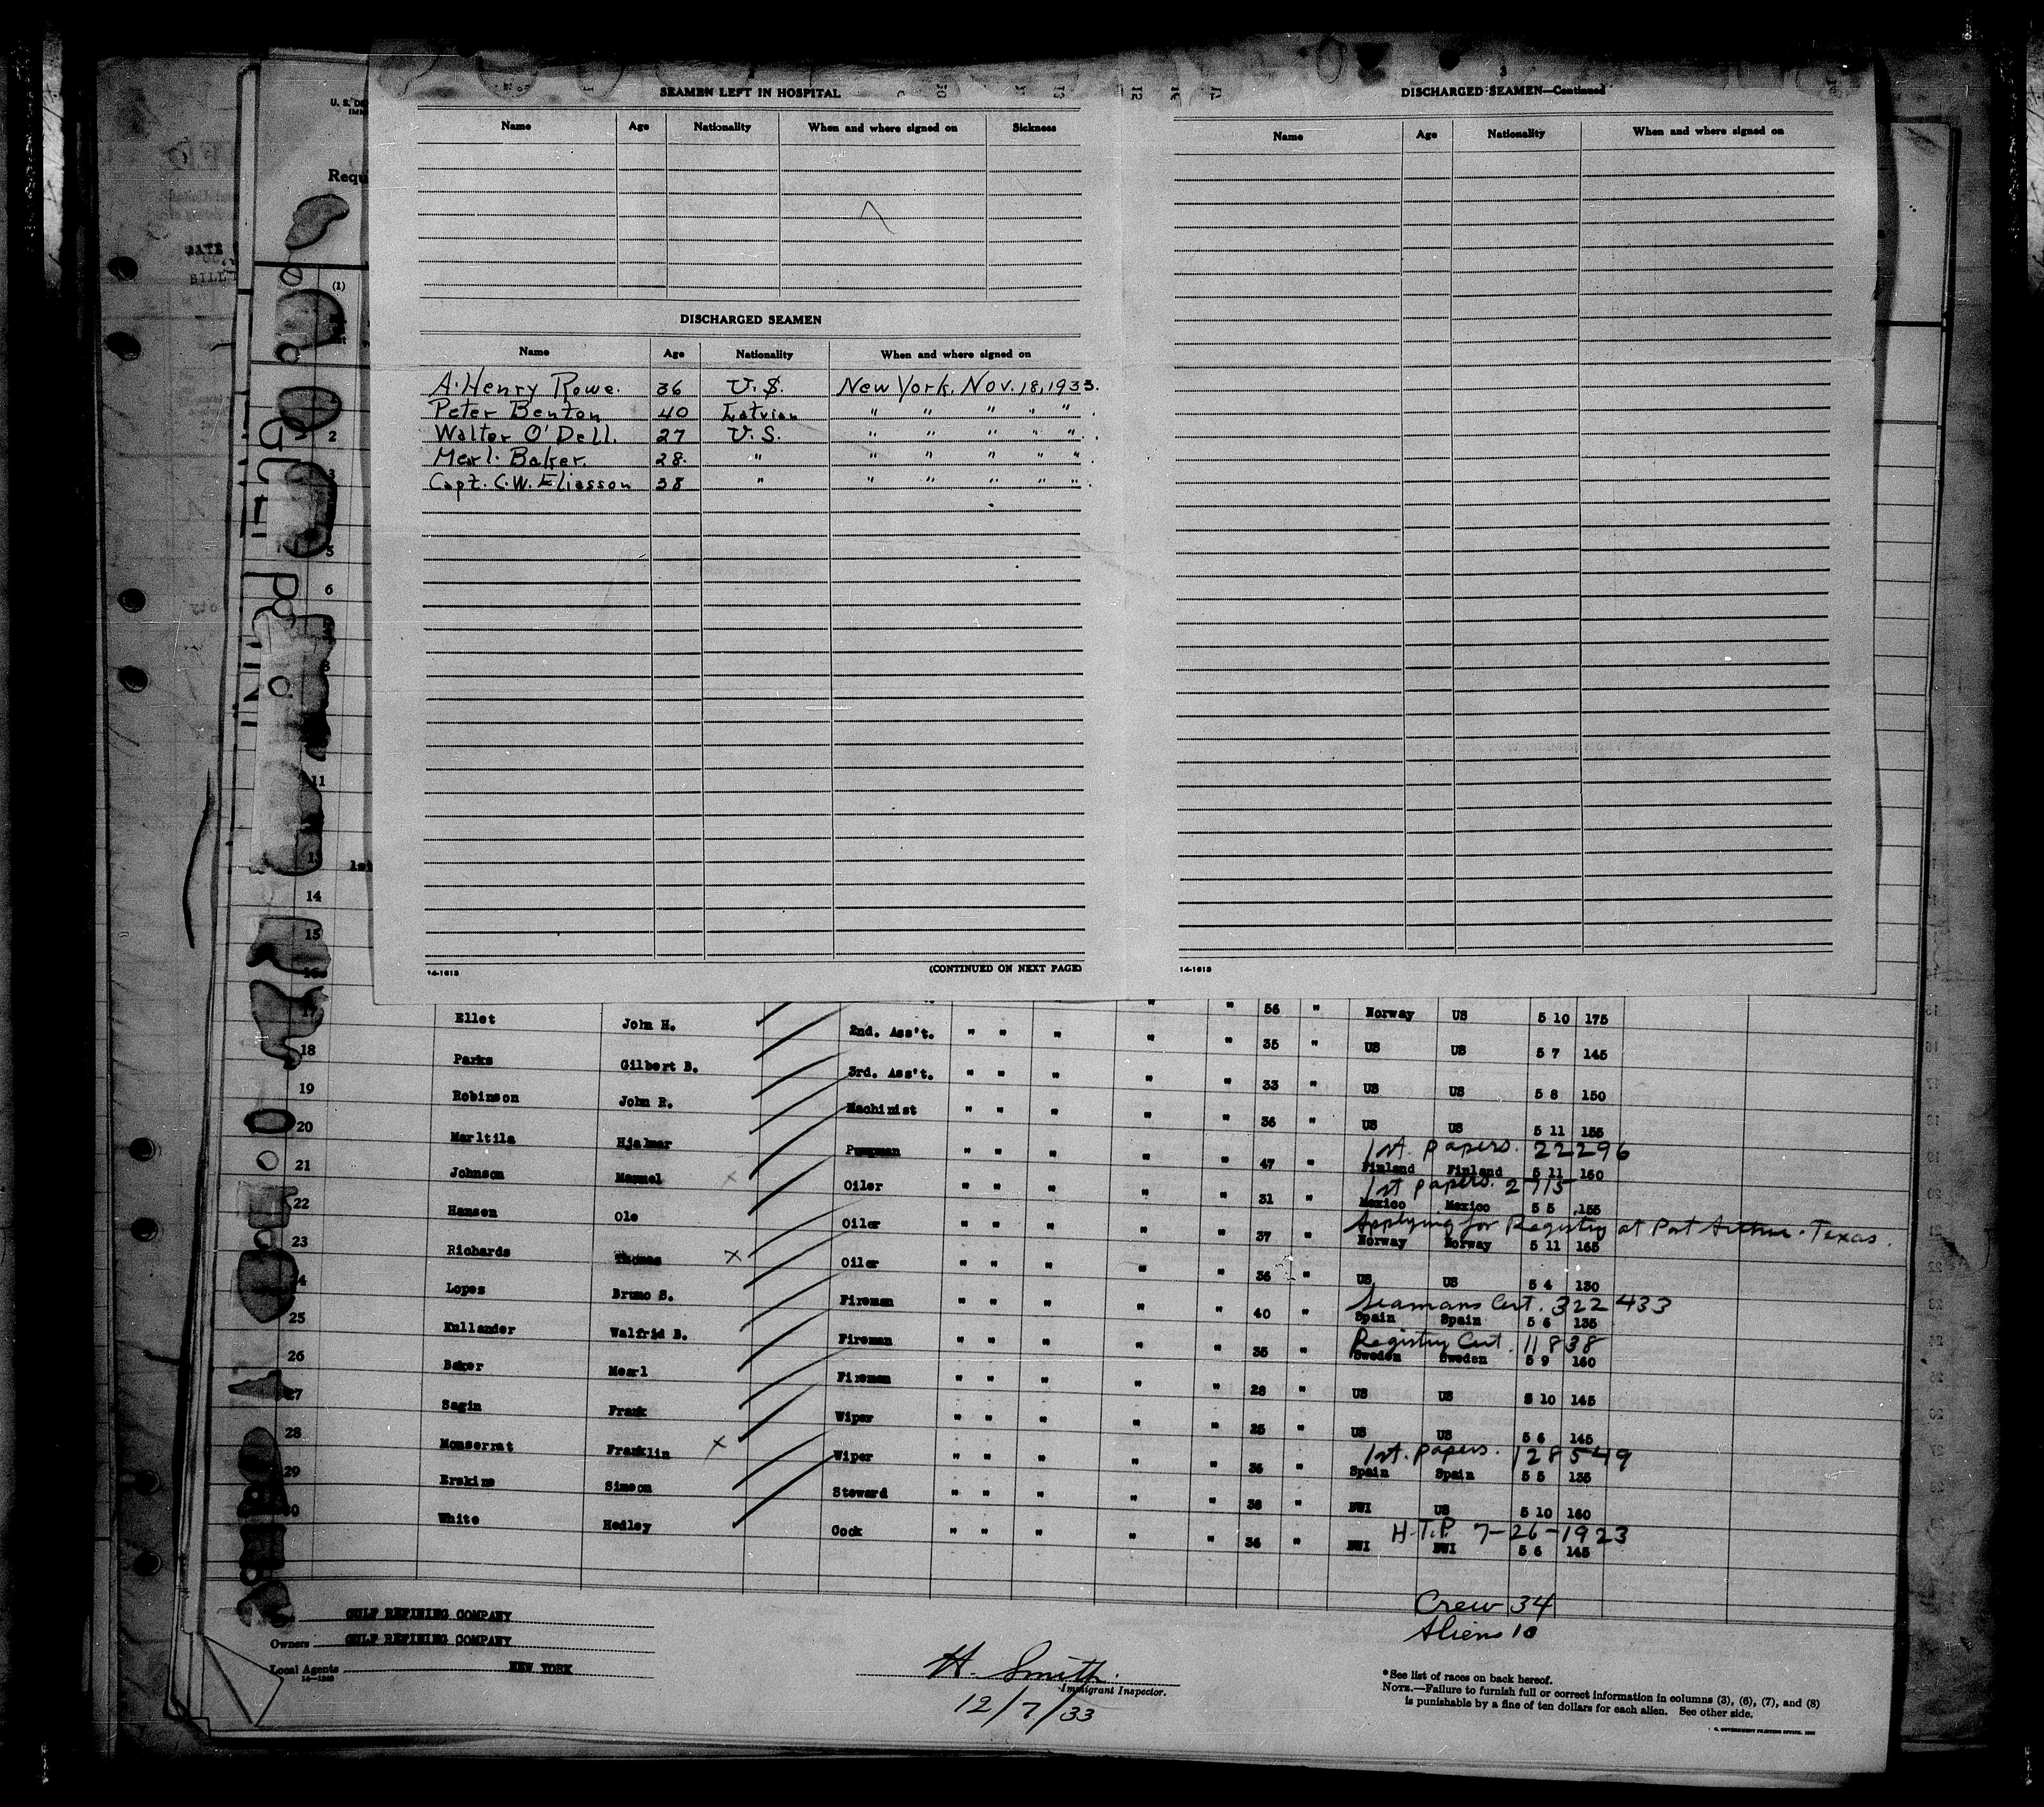 SEAMEN LEFT IN HOSPITAL
Name Age Nationality When and where signed on Sickness
DISCHARGED SEAMEN
Name Age Nationality When and where signed on
A. Henry Rowe. 36 U.S. New York. Nov. 18, 1933.
Peter Benton 40 Latvian " " " " " .
Walter O'Dell. 27 U.S. " " " " " .
Merl. Baker. 28. " " " " " " .
Capt. C.W. Eliasson 38 " " " " " " .
14-1613 (CONTINUED ON NEXT PAGE)
3
DISCHARGED SEAMEN—Continued
Name Age Nationality When and where signed on
14-1613
U. S. DE
Requ
DATE
BILL
(1)
2
3
5
6
8
11
13
14
15
56 " Norway US 5 10 175
17 Ellet John H. 2nd. Ass't. " " " " " 35 " US US 5 7 145
18 Parks Gilbert B. 3rd. Ass't. " " " " " 33 " US US 5 8 150
19 Robinson John R. Machinist " " " " " 36 " US US 5 11 155
1st. papers. 22296
20 Marltila Hjalmar Pumpman " " " " " 47 " Finland Finland 5 11 160
1st papers. 2715
21 Johnson Manuel x Oiler " " " " " 31 " Mexico Mexico 5 5 155
Applying for Registry at Port Arthur. Texas.
22 Hansen Ole Oiler " " " " " 37 " Norway Norway 5 11 165
23 Richards Thomas x Oiler " " " " " 36 " US US 5 4 130
Seamans Cert. 322433
24 Lopes Bruno S. Fireman " " " " " 40 " Spain Spain 5 6 135
Registry Cert. 11838
25 Kullander Walfrid B. Fireman " " " " " 35 " Sweden Sweden 5 9 160
26 Baker Mearl Fireman " " " " " 28 " US US 5 10 145
27 Sagin Frank Wiper " " " " " 25 " US US 5 6 145
1st. papers. 128549
28 Monserrat Franklin x Wiper " " " " " 36 " Spain Spain 5 5 135
29 Erskine Simeon Steward " " " " " 38 " BWI US 5 10 160
H.T.P. 7-26-1923
30 White Hedley Cook " " " " " 36 " BWI BWI 5 6 145
Crew 34
Aliens 10
GULF REFINING COMPANY
Owners GULF REFINING COMPANY
Local Agents NEW YORK
H. Smith
Immigrant Inspector.
12/7/33
*See list of races on back hereof.
NOTE.—Failure to furnish full or correct information in columns (3), (6), (7), and (8)
is punishable by a fine of ten dollars for each alien. See other side.